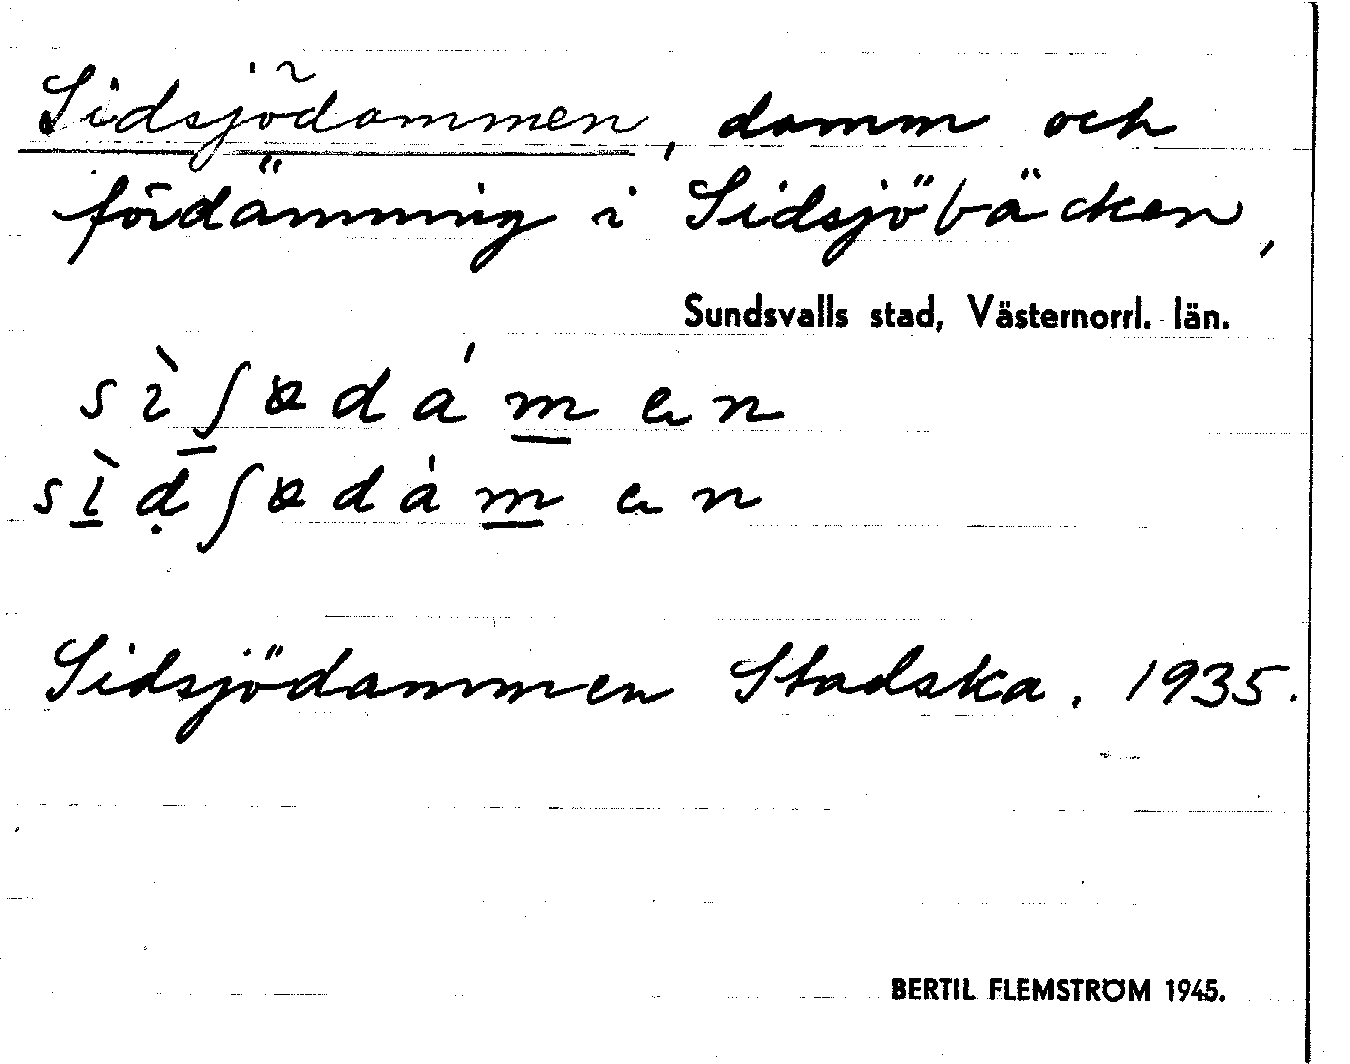 Sidsjödammen, damm och
fördämning i Sidsjöbäcken,
Sundsvalls stad, Västernorrl. län.
sìʃɷdámen
sìḍʃɷdámen
Sidsjödammen Stadska. 1935.
BERTIL FLEMSTRÖM 1945.